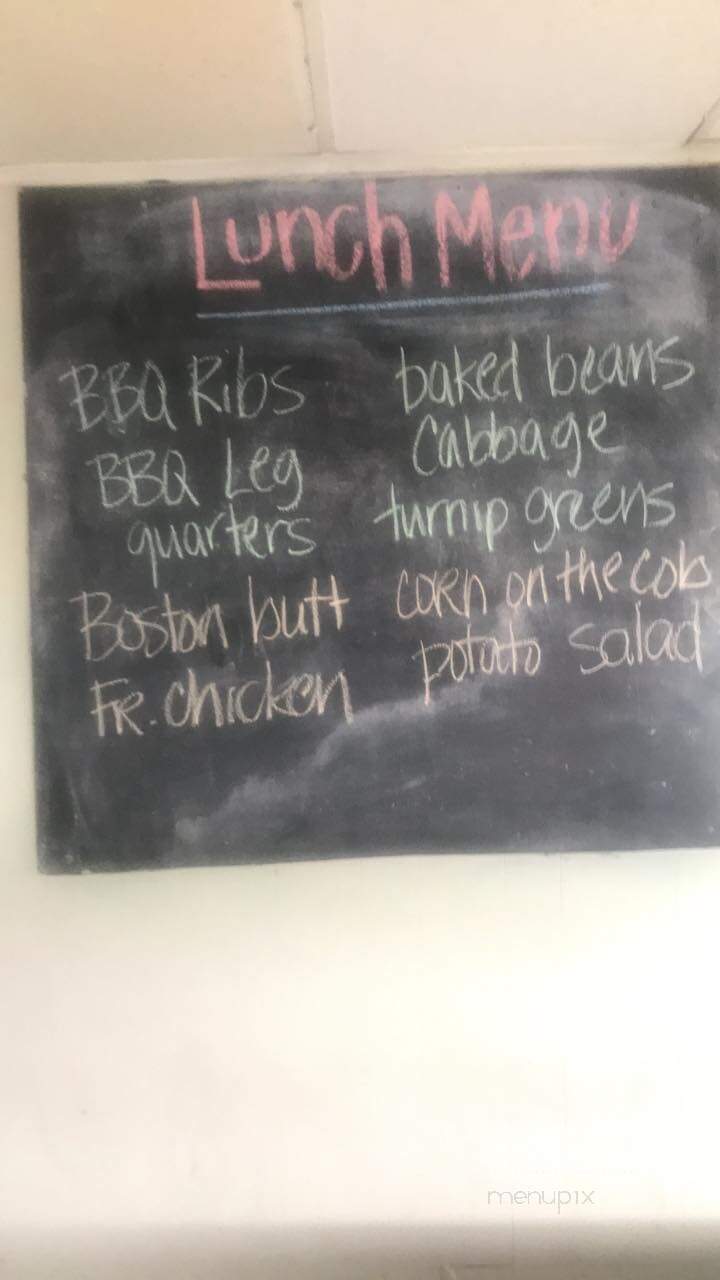 Lunch Menu
BBQ Ribs
BBQ Leg
quarters
Boston butt
FR. chicken
baked beans
Cabbage
turnip greens
corn on the cob
potato salad
menupix